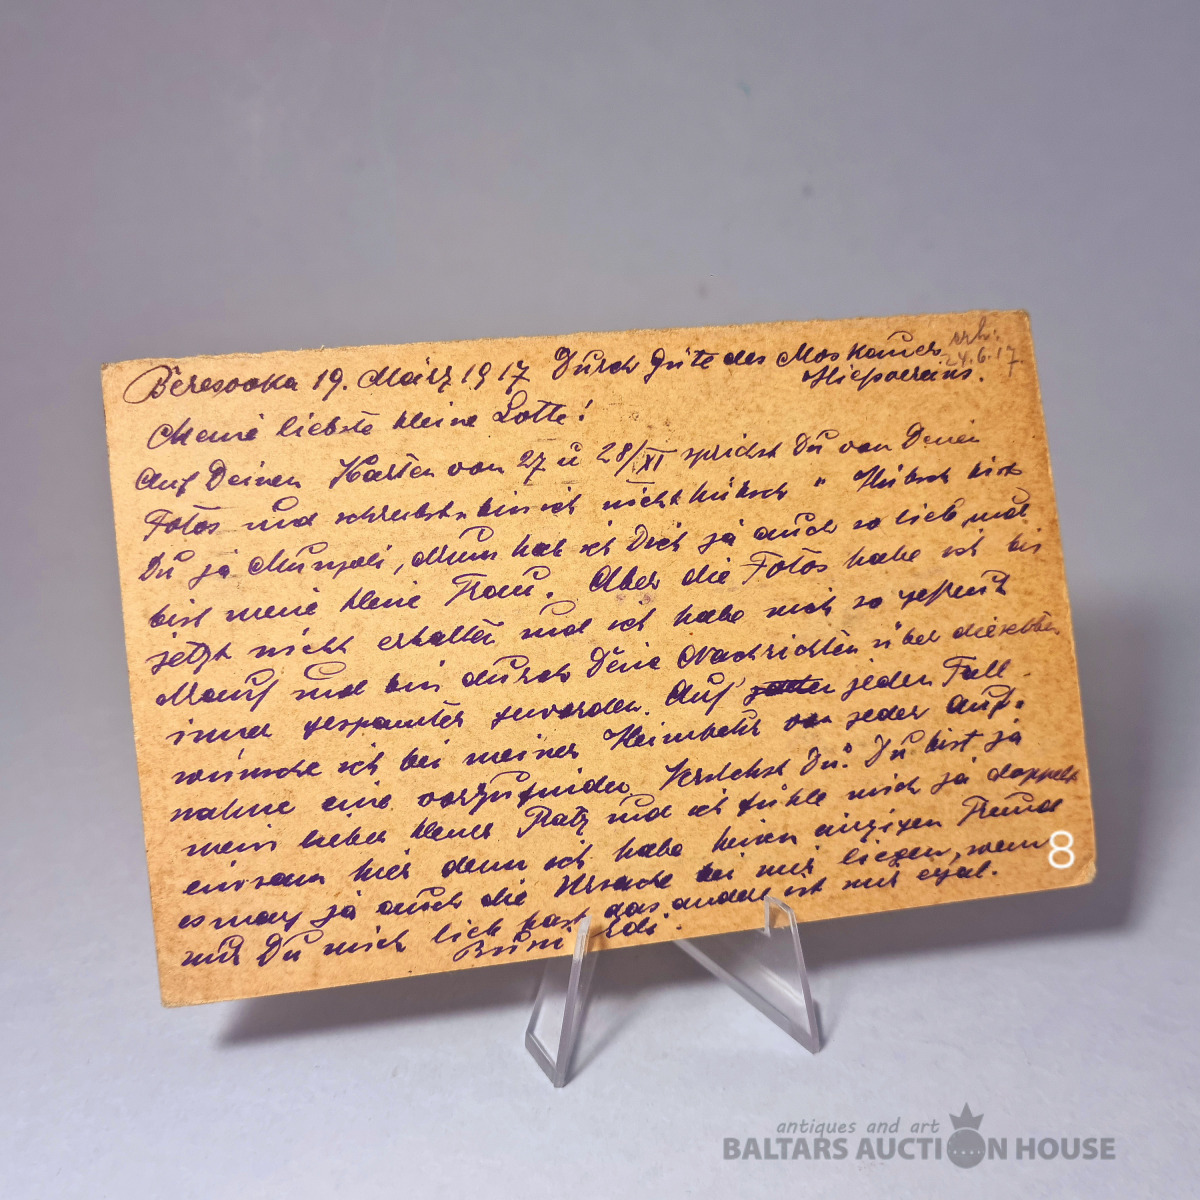 Beresovka 19. März 1917 Durch Güte des Moskauer erh:
Hilfsvereins. 24.6.17
Meine liebste kleine Lotte!
Auf Deinen Karten von 27 u 28/XI sprichst Du von Deinen
Fotos und schreibst „ bin ich nicht hübsch " Hübsch bist
Du ja , drum hab ich Dich ja auch so lieb und
bist meine kleine Frau. Aber die Fotos habe ich bis
jetzt nicht erhalten und ich habe mich so gefreut
drauf und bin durch Deine Nachrichten über dieselben
immer gespannter geworden. Auf jeden Fall
wünsche ich bei meiner Heimkehr von jeder Auf-
nahme eine vorzufinden. Verstehst Du? Du bist ja
mein lieber kleiner und ich fühle mich ja doppelt
einsam hier denn ich habe keinen einzigen Freund
es mag ja auch die Ursache bei mir liegen, wenn
nur Du mich lieb hast das andere ist mir egal.
Edi.
8
antiques and art
BALTARS AUCTION HOUSE